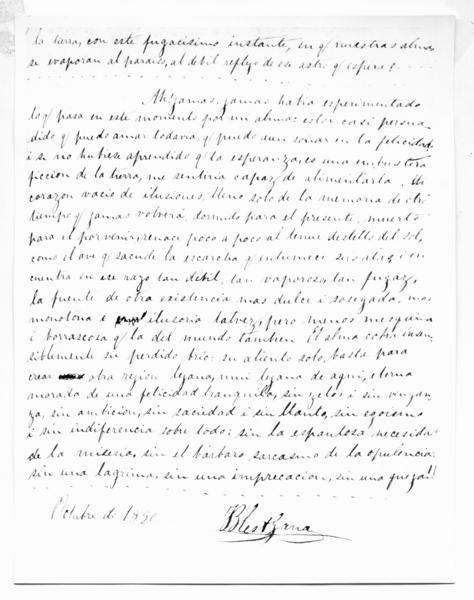 la tierra, con este fugacisimo instante, en q nuestras almas
se evaporan al paraiso, al debil reflejo de ese astro q espira?
Ah! jamas, jamas habia esperimentado
lo q pasa en este momento por mi alma: estoi casi persua-
dido q puedo amar todavia, q puedo aun soñar en la felicidad
i si no hubiese aprendido q la esperanza, es una embustera
ficcion de la tierra, me sentiria capaz de alimentarla. Mi
corazon vacio de ilusiones, lleno solo de la memoria de otro
tiempo q jamas volverá, dormido para el presente, muerto
para el porvenir, renace poco a poco al tenue destello del sol,
como el ave q sacude la escarcha q entumece sus alas; i en
cuentra en ese rayo tan debil, tan vaporoso, tan fugaz,
la fuente de otra existencia mas dulce i sosegada, mas
monotona e ilusoria talvez, pero menos mezquina
i borrascosa q la del mundo tambien. El alma cobra insen-
siblemente su perdido brio: su aliento solo, basta para
crear otra region lejana, mui lejana de aqui, eterna
morada de una felicidad tranquila, sin zelos i sin vengan-
za, sin ambicion, sin saciedad i sin llanto, sin egoismo
i sin indiferencia sobre todo: sin la espantosa necesidad
de la miseria, sin el bárbaro sarcasmo de la opulencia:
sin una lagrima, sin una imprecacion, sin una queja!!
Octubre de 1850
Blest Gana